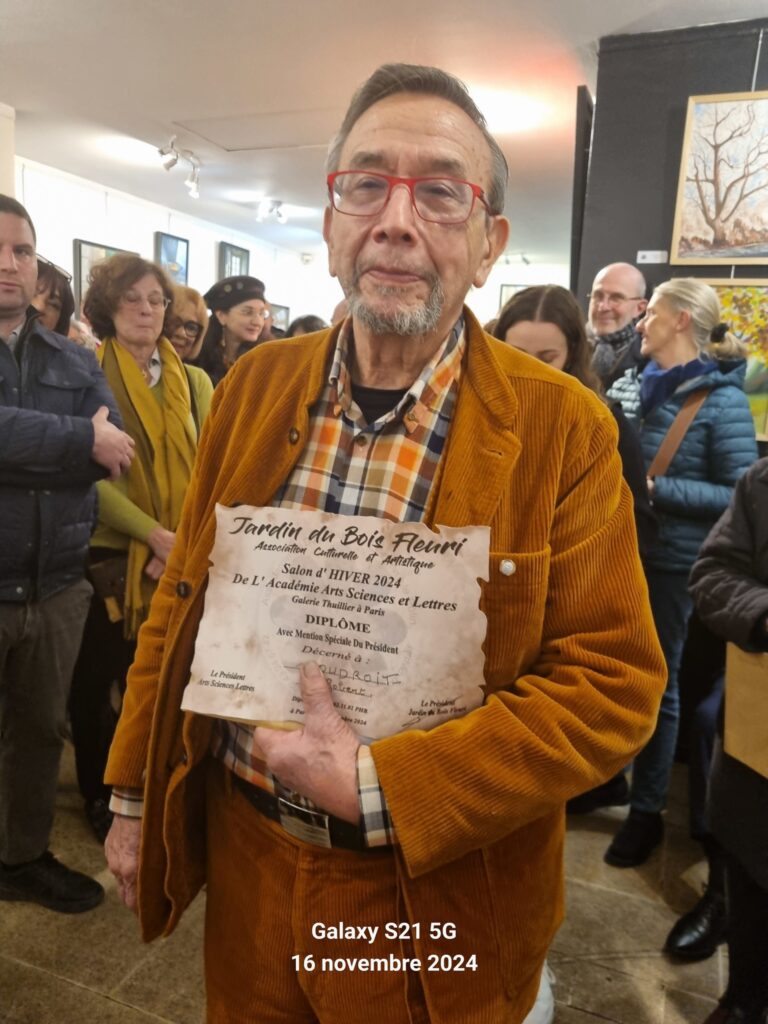 Jardin du Bois Fleuri
Association Culturelle et Artistique
Salon d' HIVER 2024
De L' Académie Arts Sciences et Lettres
Galerie Thuillier à Paris
DIPLÔME
Avec Mention Spéciale Du Président
Décerné à :
Le Président
Arts Sciences Lettres
Le Président
Jardin du Bois Fleuri
2024
Galaxy S21 5G
16 novembre 2024